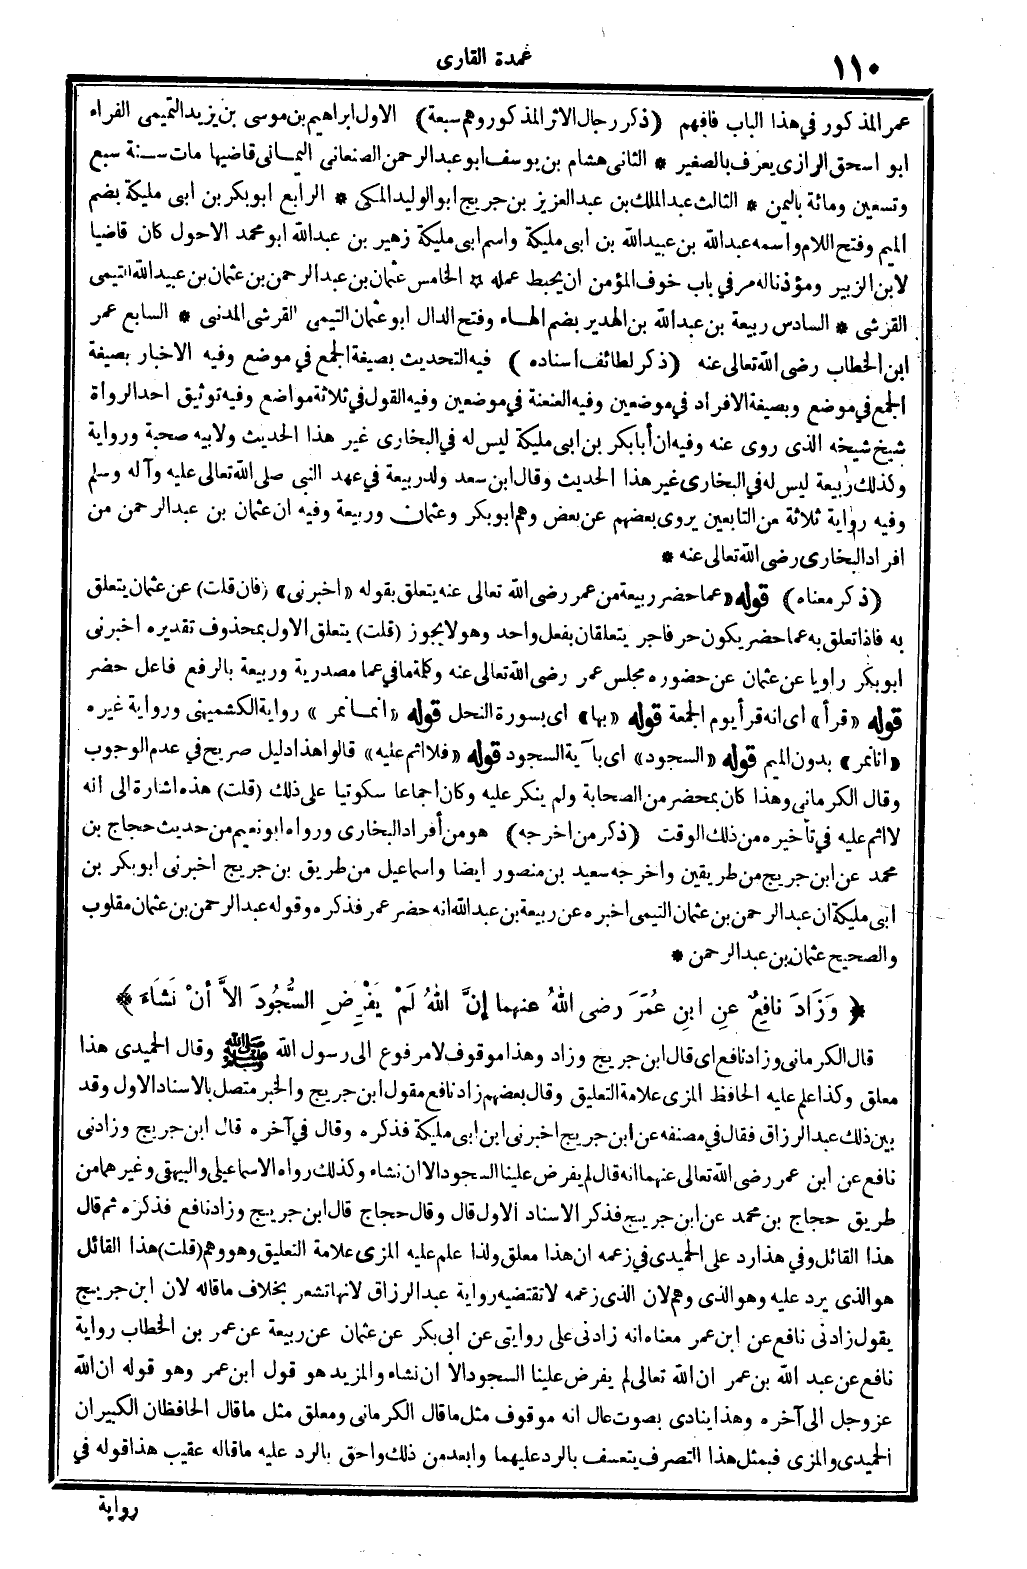 ١١٠
عمدة القارى
عمر المذكور في هذا الباب فافهم (ذكر رجال الاثر المذكور وهم سبعة) الاول ابراهيم بن موسى بن يزيد التميمى الفراء
ابو اسحق الرازى يعرف بالصغير * الثانى هشام بن يوسف ابو عبد الرحمن الصنعانى اليمانى قاضيها مات سنة سبع
وتسعين ومائة باليمن * الثالث عبد الملك بن عبد العزيز بن جريج ابو الوليد المكى * الرابع ابو بكر بن ابى مليكة بضم
الميم وفتح اللام واسمه عبد الله بن عبيد الله بن ابى مليكة واسم ابى مليكة زهير بن عبد الله ابو محمد الاحول كان قاضيا
لابن الزبير ومؤذنا له مر في باب خوف المؤمن ان يحبط عمله * الخامس عثمان بن عبد الرحمن بن عثمان بن عبيد الله التيمى
القرشى * السادس ربيعة بن عبد الله بن الهدير بضم الهاء وفتح الدال ابو عثمان التيمى القرشى المدنى * السابع عمر
ابن الخطاب رضى الله تعالى عنه (ذكر لطائف اسناده) فيه التحديث بصيغة الجمع في موضع وفيه الاخبار بصيغة
الجمع في موضع وبصيغة الافراد في موضعين وفيه العنعنة في موضعين وفيه القول في ثلاثة مواضع وفيه توثيق احد الرواة
شيخ شيخه الذى روى عنه وفيه ان أبا بكر بن ابى مليكة ليس له في البخارى غير هذا الحديث ولابيه صحبة ورواية
وكذلك ربيعة ليس له في البخارى غير هذا الحديث وقال ابن سعد ولد ربيعة في عهد النبى صلى الله تعالى عليه وآله وسلم
وفيه رواية ثلاثة من التابعين يروى بعضهم عن بعض وهم ابو بكر وعثمان وربيعة وفيه ان عثمان بن عبد الرحمن من
افراد البخارى رضى الله تعالى عنه *
(ذكر معناه) قوله «عما حضر ربيعة من عمر رضى الله تعالى عنه يتعلق بقوله «اخبرنى» (فان قلت) عن عثمان يتعلق
به فاذا تعلق به عما حضر يكون حرفا جر يتعلقان بفعل واحد وهو لا يجوز (قلت) يتعلق الاول بمحذوف تقديره اخبرنى
ابو بكر راويا عن عثمان عن حضوره مجلس عمر رضى الله تعالى عنه وكلمة ما في عما مصدرية وربيعة بالرفع فاعل حضر
قوله «قرأ» اى انه قرأ يوم الجمعة قوله «بها» اى بسورة النحل قوله «انما نمر» رواية الكشميهنى ورواية غيره
«انا نمر» بدون الميم قوله «السجود» اى بآية السجود قوله «فلا اثم عليه» قالوا هذا دليل صريح في عدم الوجوب
وقال الكرمانى وهذا كان بمحضر من الصحابة ولم ينكر عليه وكان اجماعا سكوتيا على ذلك (قلت) هذه اشارة الى انه
لا اثم عليه في تأخيره من ذلك الوقت (ذكر من اخرجه) هو من أفراد البخارى ورواه ابو نعيم من حديث حجاج بن
محمد عن ابن جريج من طريقين واخرجه سعيد بن منصور ايضا واسماعيل من طريق بن جريج اخبرنى ابو بكر بن
ابى مليكة ان عبد الرحمن بن عثمان التيمى اخبره عن ربيعة بن عبد الله انه حضر عمر فذكره وقوله عبد الرحمن بن عثمان مقلوب
والصحيح عثمان بن عبد الرحمن *
﴿ وَزَادَ نافِعٌ عنِ ابنِ عُمَرَ رضى اللهُ عنهما إنَّ اللهَ لَمْ يَفْرِضِ السُّجُودَ الاَّ أنْ نَشَاءَ ﴾
قال الكرمانى وزاد نافع اى قال ابن جريج وزاد وهذا موقوف لا مرفوع الى رسول الله ﷺ وقال الحميدى هذا
معلق وكذا علم عليه الحافظ المزى علامة التعليق وقال بعضهم زاد نافع مقول ابن جريج والخبر متصل بالاسناد الاول وقد
بين ذلك عبد الرزاق فقال في مصنفه عن ابن جريج اخبرنى ابن ابى مليكة فذكره وقال في آخره قال ابن جريج وزادنى
نافع عن ابن عمر رضى الله تعالى عنهما انه قال لم يفرض علينا السجود الا ان نشاء وكذلك رواه الاسماعيلى والبيهقى وغيرهما من
طريق حجاج بن محمد عن ابن جريج فذكر الاسناد الاول قال وقال حجاج قال ابن جريج وزاد نافع فذكره ثم قال
هذا القائل وفي هذا رد على الحميدى في زعمه ان هذا معلق ولذا علم عليه المزى علامة التعليق وهو وهم (قلت) هذا القائل
هو الذى يرد عليه وهو الذى وهم لان الذى زعمه لا تقتضيه رواية عبد الرزاق لانها تشعر بخلاف ما قاله لان ابن جريج
يقول زادنى نافع عن ابن عمر معناه انه زادنى على روايتى عن ابى بكر عن عثمان عن ربيعة عن عمر بن الخطاب رواية
نافع عن عبد الله بن عمر ان الله تعالى لم يفرض علينا السجود الا ان نشاء والمزيد هو قول ابن عمر وهو قوله ان الله
عز وجل الى آخره وهذا ينادى بصوت عال انه موقوف مثل ما قال الكرمانى ومعلق مثل ما قال الحافظان الكبيران
الحميدى والمزى فبمثل هذا التصرف يتعسف بالرد عليهما وابعد من ذلك واحق بالرد عليه ما قاله عقيب هذا قوله في
رواية